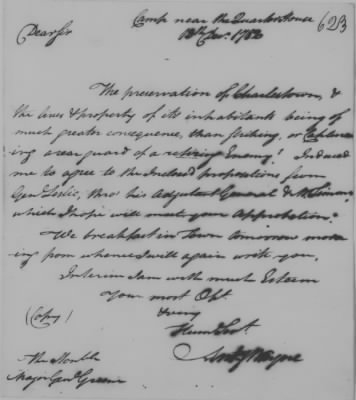 Camp near the Quarter House 623
Dear Sir
13th Decr. 1782
The preservation of Charlestown, &
the lives & property of its inhabitants being of
much greater consequence, than striking, or Captur
ing a rear guard of a retiring Enemy! Induced
me to agree to the Inclosed propositions from
Genl Leslie, thro' his Adjutant General & Mr. Simms
which I hope will meet your Approbation.
We breakfast in Town tomorrow morn
ing from whence I will again write you,
Interim I am with much Esteem
Your most Obt.
& very
(Copy)
Humb Sert.
Anty Wayne
The Honble
Major Genl Greene